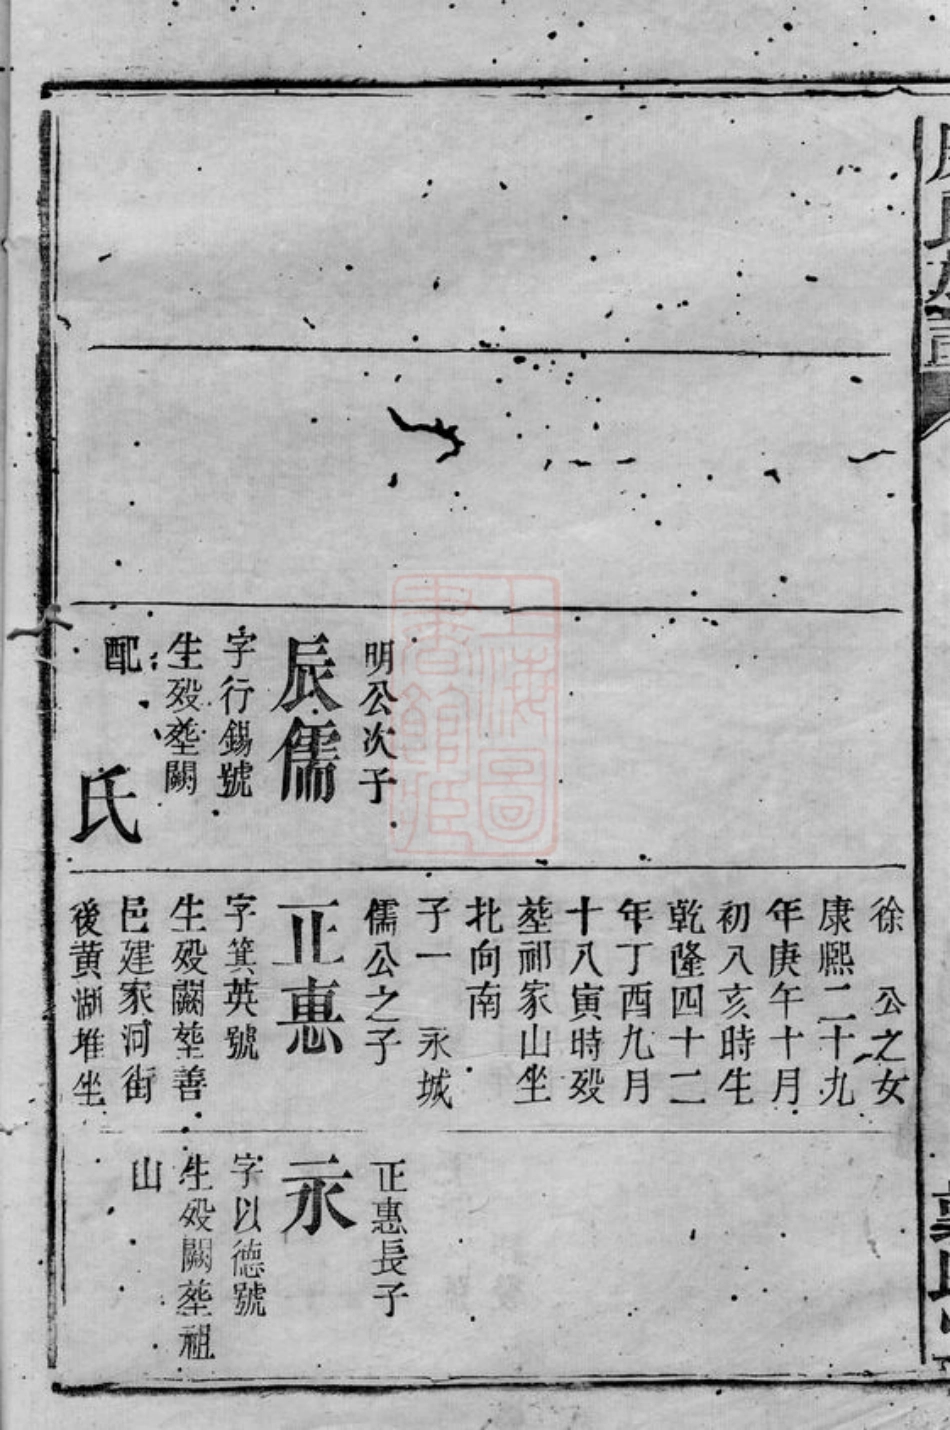 明公次子
辰儒
字行錫號
生殁塟闕
配
氏
徐 公之女
康熙二十九
年庚午十月
初八亥時生
乾隆四十二
年丁酉九月
十八寅時殁
塟祁家山坐
北向南
子一 永城
儒公之子
正惠
字箕英號
生殁闕塟善
邑建家河街
後黄湖堆坐
正惠長子
永
字以德號
生殁闕塟祖
山
上海圖
書館藏